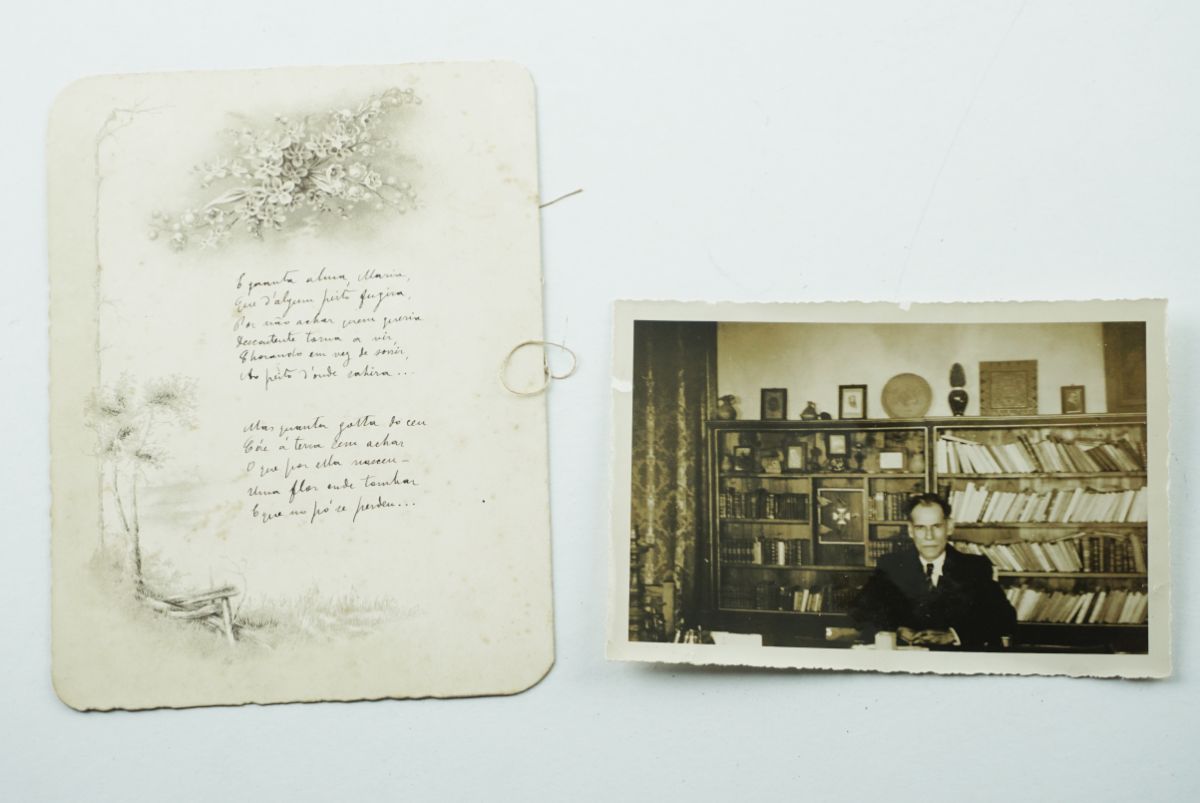 E quanta alma, Maria,
Que d'algum peito fugira,
Por não achar quem queria
Descontente torna a vir,
Chorando em vez de sorrir,
Ao peito d'onde sahira...
Mas quanta gotta do ceu
Cáe á terra sem achar
O que por ella nasceu -
Uma flor onde tombar
E que no pó se perdeu...